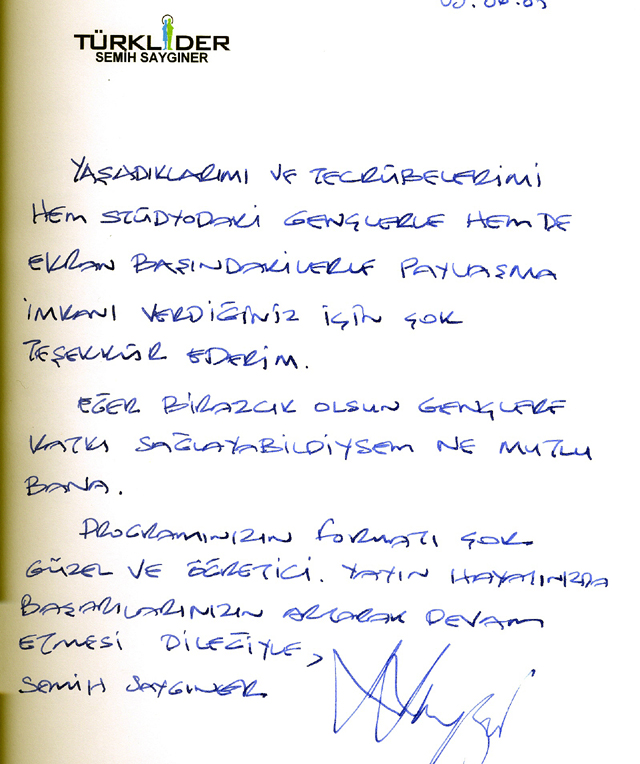 TÜRKLİDER
SEMİH SAYGINER
YAŞADIKLARIMI VE TECRÜBELERİMİ
HEM STÜDYODAKİ GENÇLERLE HEM DE
EKRAN BAŞINDAKİLERLE PAYLAŞMA
İMKANI VERDİĞİNİZ İÇİN ÇOK
TEŞEKKÜR EDERİM.
EĞER BİRAZCIK OLSUN GENÇLERE
KATKI SAĞLAYABİLDİYSEM NE MUTLU
BANA.
PROGRAMINIZIN FORMATI ÇOK
GÜZEL VE ÖĞRETİCİ. YAYIN HAYATINIZDA
BAŞARILARINIZIN ARTARAK DEVAM
ETMESİ DİLEĞİYLE,
SEMİH SAYGINER